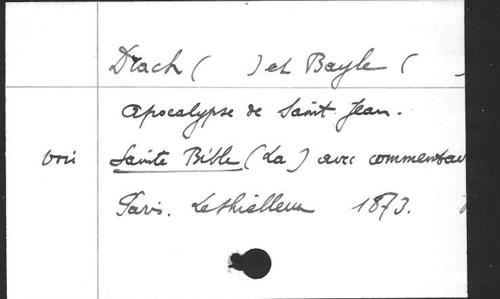 Drach (      ) et Bayle (
Apocalypse de Saint Jean.
voir Sainte Bible (La) avec commentai
Paris. Lethielleux 1873.